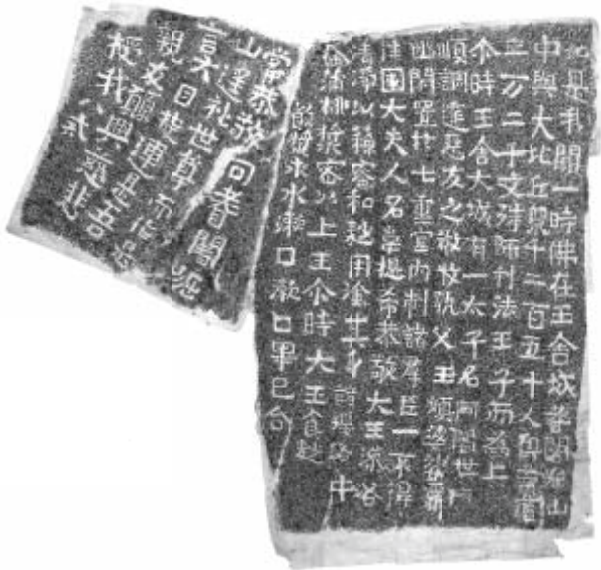 如是我聞一時佛在王舍城耆闍崛山
中與大比丘眾千二百五十人俱菩薩
三万二千文殊師利法王子而為上
尒時王舍大城有一太子名阿闍世
順調達惡友之教收執父王頻婆娑羅
幽閉置於七重室內制諸群臣一不得
往國大夫人名韋提希恭敬大王澡浴
清淨以蘇蜜和麨用塗其身諸瓔珞中
盛蒲桃漿密以上王尒時大王食麨
飲漿求水漱口漱口畢已合
掌恭敬向耆闍崛
山遥礼世尊而作是
言大目揵連是吾
親友願興慈悲
授我八戒